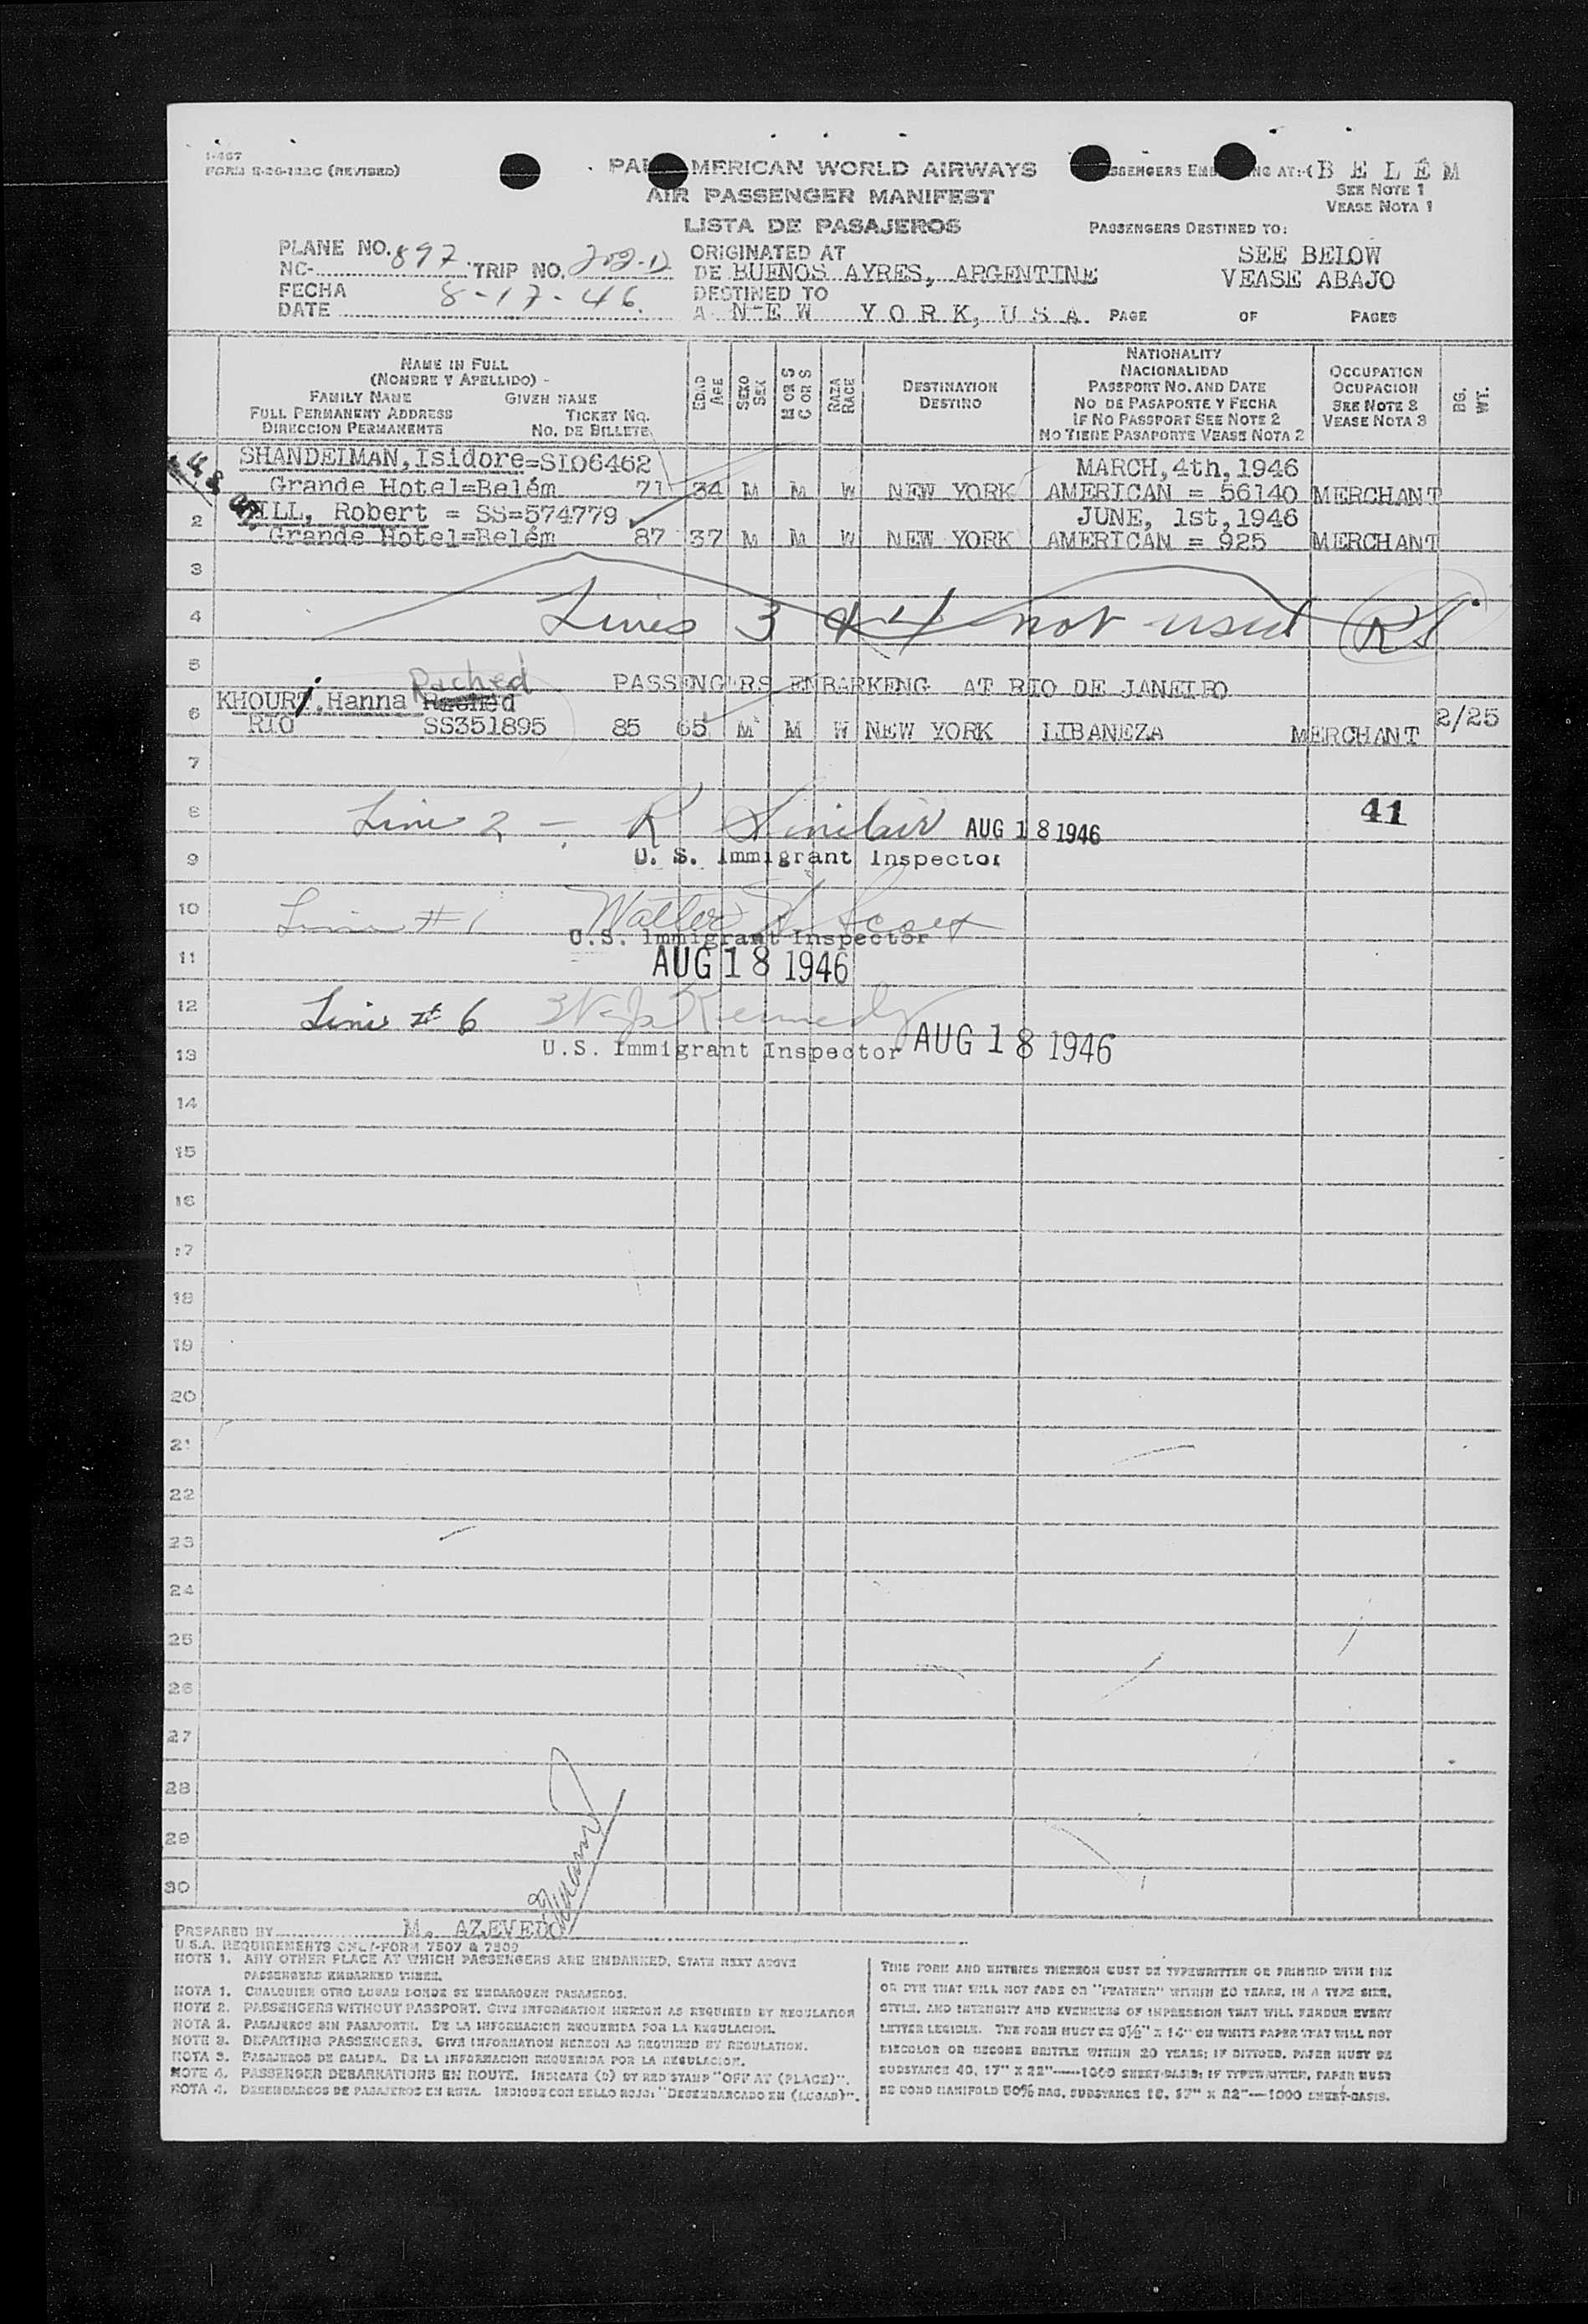 I-467
FORM S-26-122C (REVISED)
PAN AMERICAN WORLD AIRWAYS
AIR PASSENGER MANIFEST
LISTA DE PASAJEROS
PASSENGERS EMBARKING AT:-( B E L É M
SEE NOTE 1
VEASE NOTA 1
PASSENGERS DESTINED TO:
SEE BELOW
VEASE ABAJO
PLANE NO. 897
NC- TRIP NO. 202-D
FECHA 8-17-46.
DATE
ORIGINATED AT
DE BUENOS AYRES, ARGENTINE
DESTINED TO
A N E W Y O R K, U S A. PAGE OF PAGES
NAME IN FULL
(NOMBRE Y APELLIDO) -
FAMILY NAME GIVEN NAME
FULL PERMANENT ADDRESS TICKET NO.
DIRECCION PERMANENTE NO. DE BILLETE
EDAD AGE
SEXO SEX
M OR S C OR S
RAZA RACE
DESTINATION
DESTINO
NATIONALITY
NACIONALIDAD
PASSPORT NO. AND DATE
NO DE PASAPORTE Y FECHA
IF NO PASSPORT SEE NOTE 2
NO TIENE PASAPORTE VEASE NOTA 2
OCCUPATION
OCUPACION
SEE NOTE 3
VEASE NOTA 3
BG. WT.
SHANDELMAN, Isidore=SI06462 MARCH,4th,1946
Grande Hotel=Belém 71 34 M M W NEW YORK AMERICAN = 56140 MERCHANT
2 Robert = SS=574779 JUNE, 1st,1946
Grande Hotel=Belém 87 37 M M W NEW YORK AMERICAN = 925 MERCHANT
3
4 Lines 3 & 4 not used RS
5 Rached PASSENGERS EMBARKENG AT RIO DE JANEIRO
KHOURI, Hanna Rached
6 RIO SS351895 85 65 M M W NEW YORK LIBANEZA MERCHANT 2/25
7
8 Line 2 - R Sinclair AUG 18 1946 41
9 U. S. Immigrant Inspector
10 Line #1 Walter
U.S. Immigrant Inspector
11 AUG 18 1946
12 Line # 6 Kennedy
13 U.S. Immigrant Inspector AUG 18 1946
14
15
16
17
18
19
20
21
22
23
24
25
26
27
28
29
30
PREPARED BY M. AZEVEDO
U.S.A. REQUIREMENTS ONLY-FORM 7507 & 7509
NOTE 1. ANY OTHER PLACE AT WHICH PASSENGERS ARE EMBARKED, STATE NEXT ABOVE
PASSENGERS EMBARKED THERE.
NOTA 1. CUALQUIER OTRO LUGAR DONDE SE EMBARQUEN PASAJEROS.
NOTE 2. PASSENGERS WITHOUT PASSPORT. GIVE INFORMATION HEREON AS REQUIRED BY REGULATION
NOTA 2. PASAJEROS SIN PASAPORTE. DE LA INFORMACION REQUERIDA POR LA REGULACION.
NOTE 3. DEPARTING PASSENGERS. GIVE INFORMATION HEREON AS REQUIRED BY REGULATION.
NOTA 3. PASAJEROS DE SALIDA. DE LA INFORMACION REQUERIDA POR LA REGULACION.
NOTE 4. PASSENGER DEBARKATIONS EN ROUTE. INDICATE (D) BY RED STAMP "OFF AT (PLACE)".
NOTA 4. DESEMBARCOS DE PASAJEROS EN RUTA. INDIQUE CON SELLO ROJO: "DESEMBARCADO EN (LUGAR)".
THIS FORM AND ENTRIES THEREON MUST BE TYPEWRITTEN OR PRINTED WITH INK
OR DYE THAT WILL NOT FADE OR "FEATHER" WITHIN 20 YEARS, IN A TYPE SIZE,
STYLE, AND INTENSITY AND EVENNESS OF IMPRESSION THAT WILL RENDER EVERY
LETTER LEGIBLE. THE FORM MUST BE 8½" X 14" ON WHITE PAPER THAT WILL NOT
DISCOLOR OR BECOME BRITTLE WITHIN 20 YEARS; IF DITTOED, PAPER MUST BE
SUBSTANCE 40, 17" X 22"—1000 SHEET-BASIS; IF TYPEWRITTEN, PAPER MUST
BE BOND MANIFOLD 50% RAG, SUBSTANCE 18, 17" X 22"—1000 SHEET-BASIS.